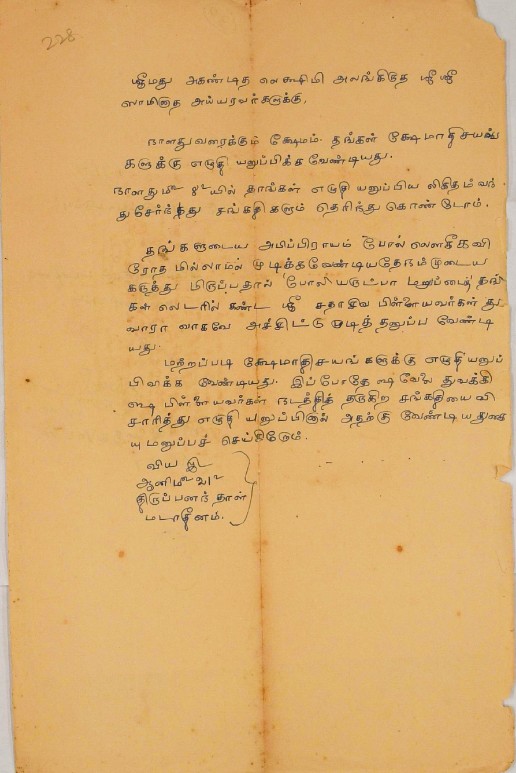 228
ஸ்ரீமது அகண்டித லெக்ஷிமி அலங்கிருத ஸ்ரீ ஸ்ரீ
ஸாமிநாத அய்யரவர்களுக்கு,
நாளதுவரைக்கும் க்ஷேமம். தங்கள் க்ஷேமாதிசயங்
களுக்கு எழுதி யனுப்பிக்கவேண்டியது.
நாளதுமீ 8௳யில் தாங்கள் எழுதி யனுப்பிய லிகிதம் வந்
துசேர்ந்து சங்கதிகளும் தெரிந்து கொண்டோம்.
தங்களுடைய அபிப்பிராயம் போல் லௌகீகவி
ரோத மில்லாமல் முடிக்கவேண்டியதேநம்முடைய
கருத்து மிருப்பதால் போலி யருட்பா தங்
கள் லெடரில் கண்ட ஸ்ரீ சதாசிவ பிள்ளையவர்கள் து
வாரா வாகவே அச்சிட்டு முடித் தனுப்ப வேண்டி
யது.
மற்றப்படி க்ஷேமாதிசயங் களுக்கு எழுதியனுப்
பிவிக்க வேண்டியது. இப்போதே வேலை துவக்கி
பிள்ளையவர்கள் நடத்தித் தருகிற சங்கதியை வி
சாரித்து எழுதி யனுப்பினால் அதற்கு வேண்டியதுகை
யுமனுப்பச் செய்கிறோம்.
விய ௵
ஆனிமீ
திருப்பனந் தாள்
மடாதீனம்.